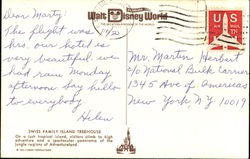 Dear Marty,
The flight was 1 1/2
hrs. our hotel is
very beautiful. we
had rain Monday
afternoon. Say hello
to everybody
Helen
Walt Disney World
Mr. Martin Herbert
c/o National Bulk Carriers
1345 Ave of Americas
New York, N.Y. 10019
USAIR MAIL
SWISS FAMILY ISLAND TREEHOUSE
On a lush tropical island, visitors climb to high
adventure and a spectacular panorama of the
jungle regions of Adventureland.